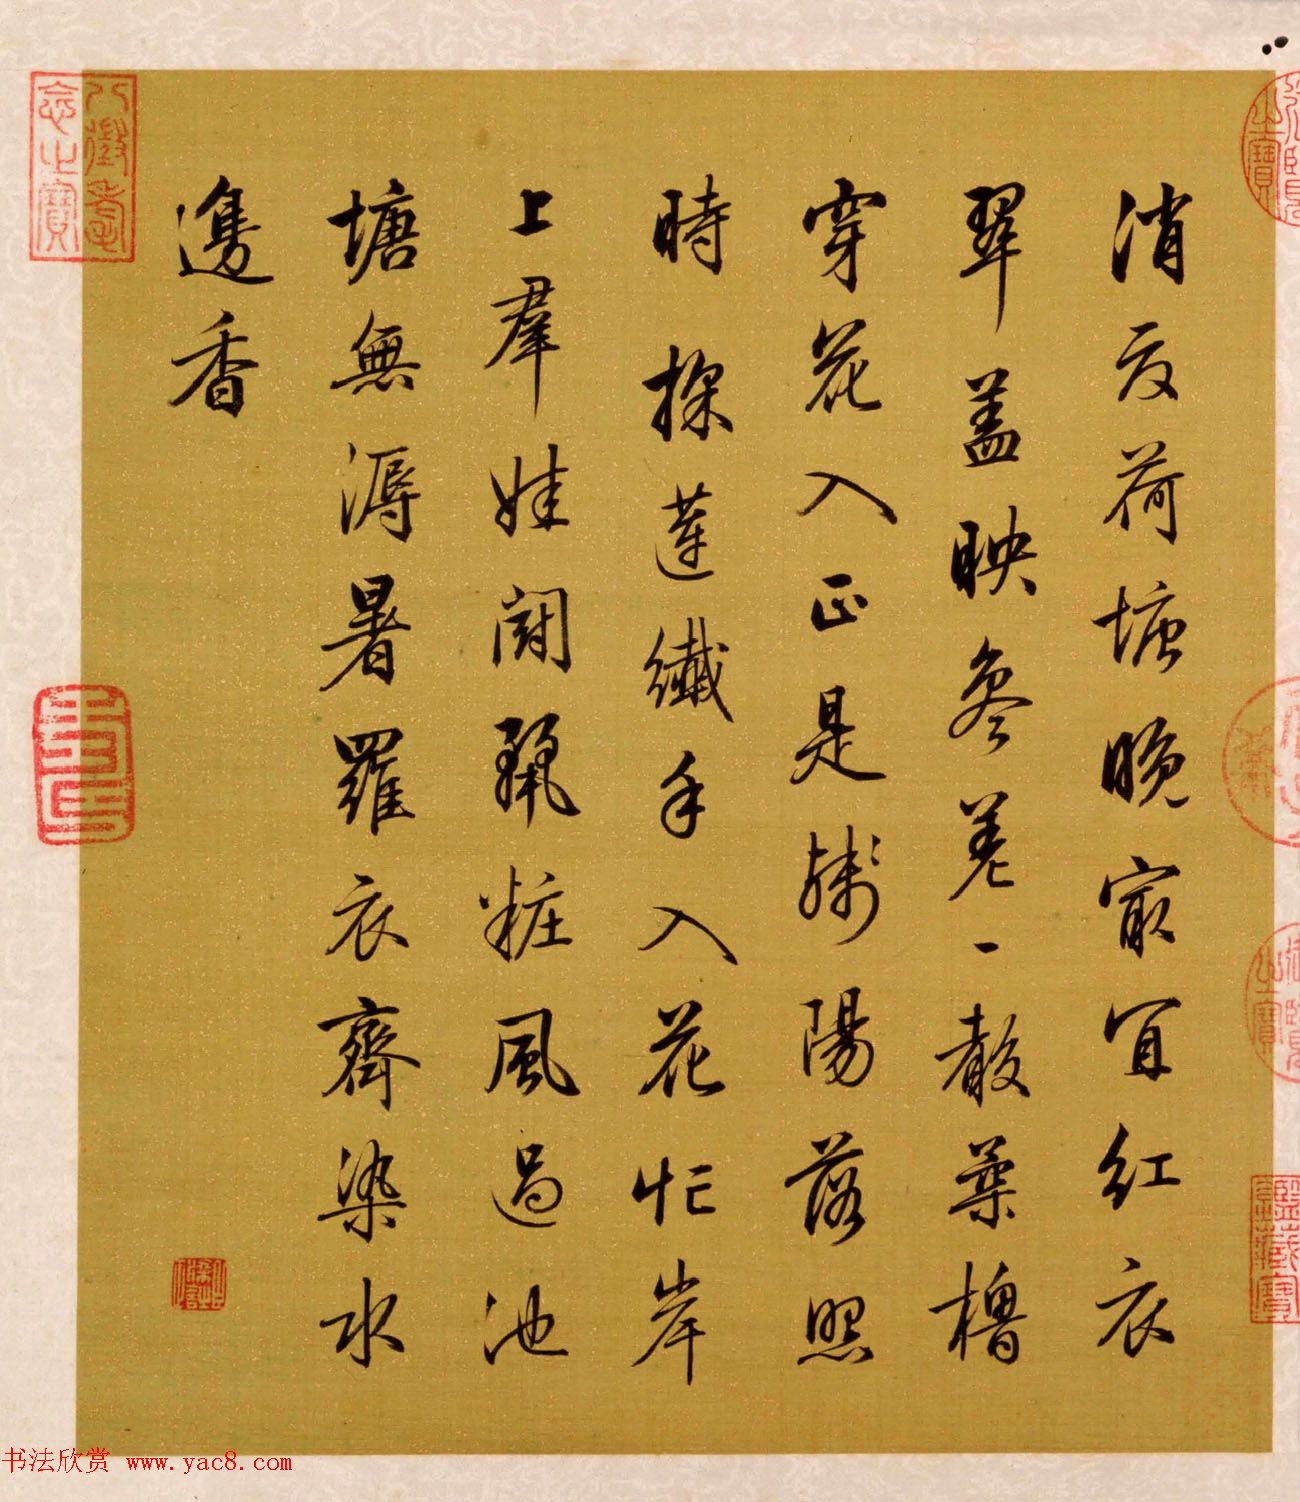 消夏荷塘晚最宜紅衣
翠蓋映參差一散葉櫓
穿花入正是斜陽落照
時採蓮纖手入花忙岸
上羣娃鬪靚粧風過池
塘無溽暑羅衣齊染水
邊香
八徵耄念之寶
鑑藏寶
书法欣赏 www.yac8.com